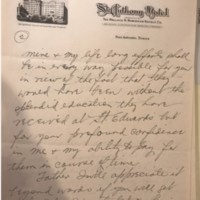 St. Anthony Hotel
San Antonio, Texas
2
mine & my life long efforts shall
be in every way possible for you
in view of the fact that they
would have been without the
splendid education they have
received at St Edwards but
for your profound confidence
in me & my ability to pay for
them in course of time.
Father
beyond words if you will get